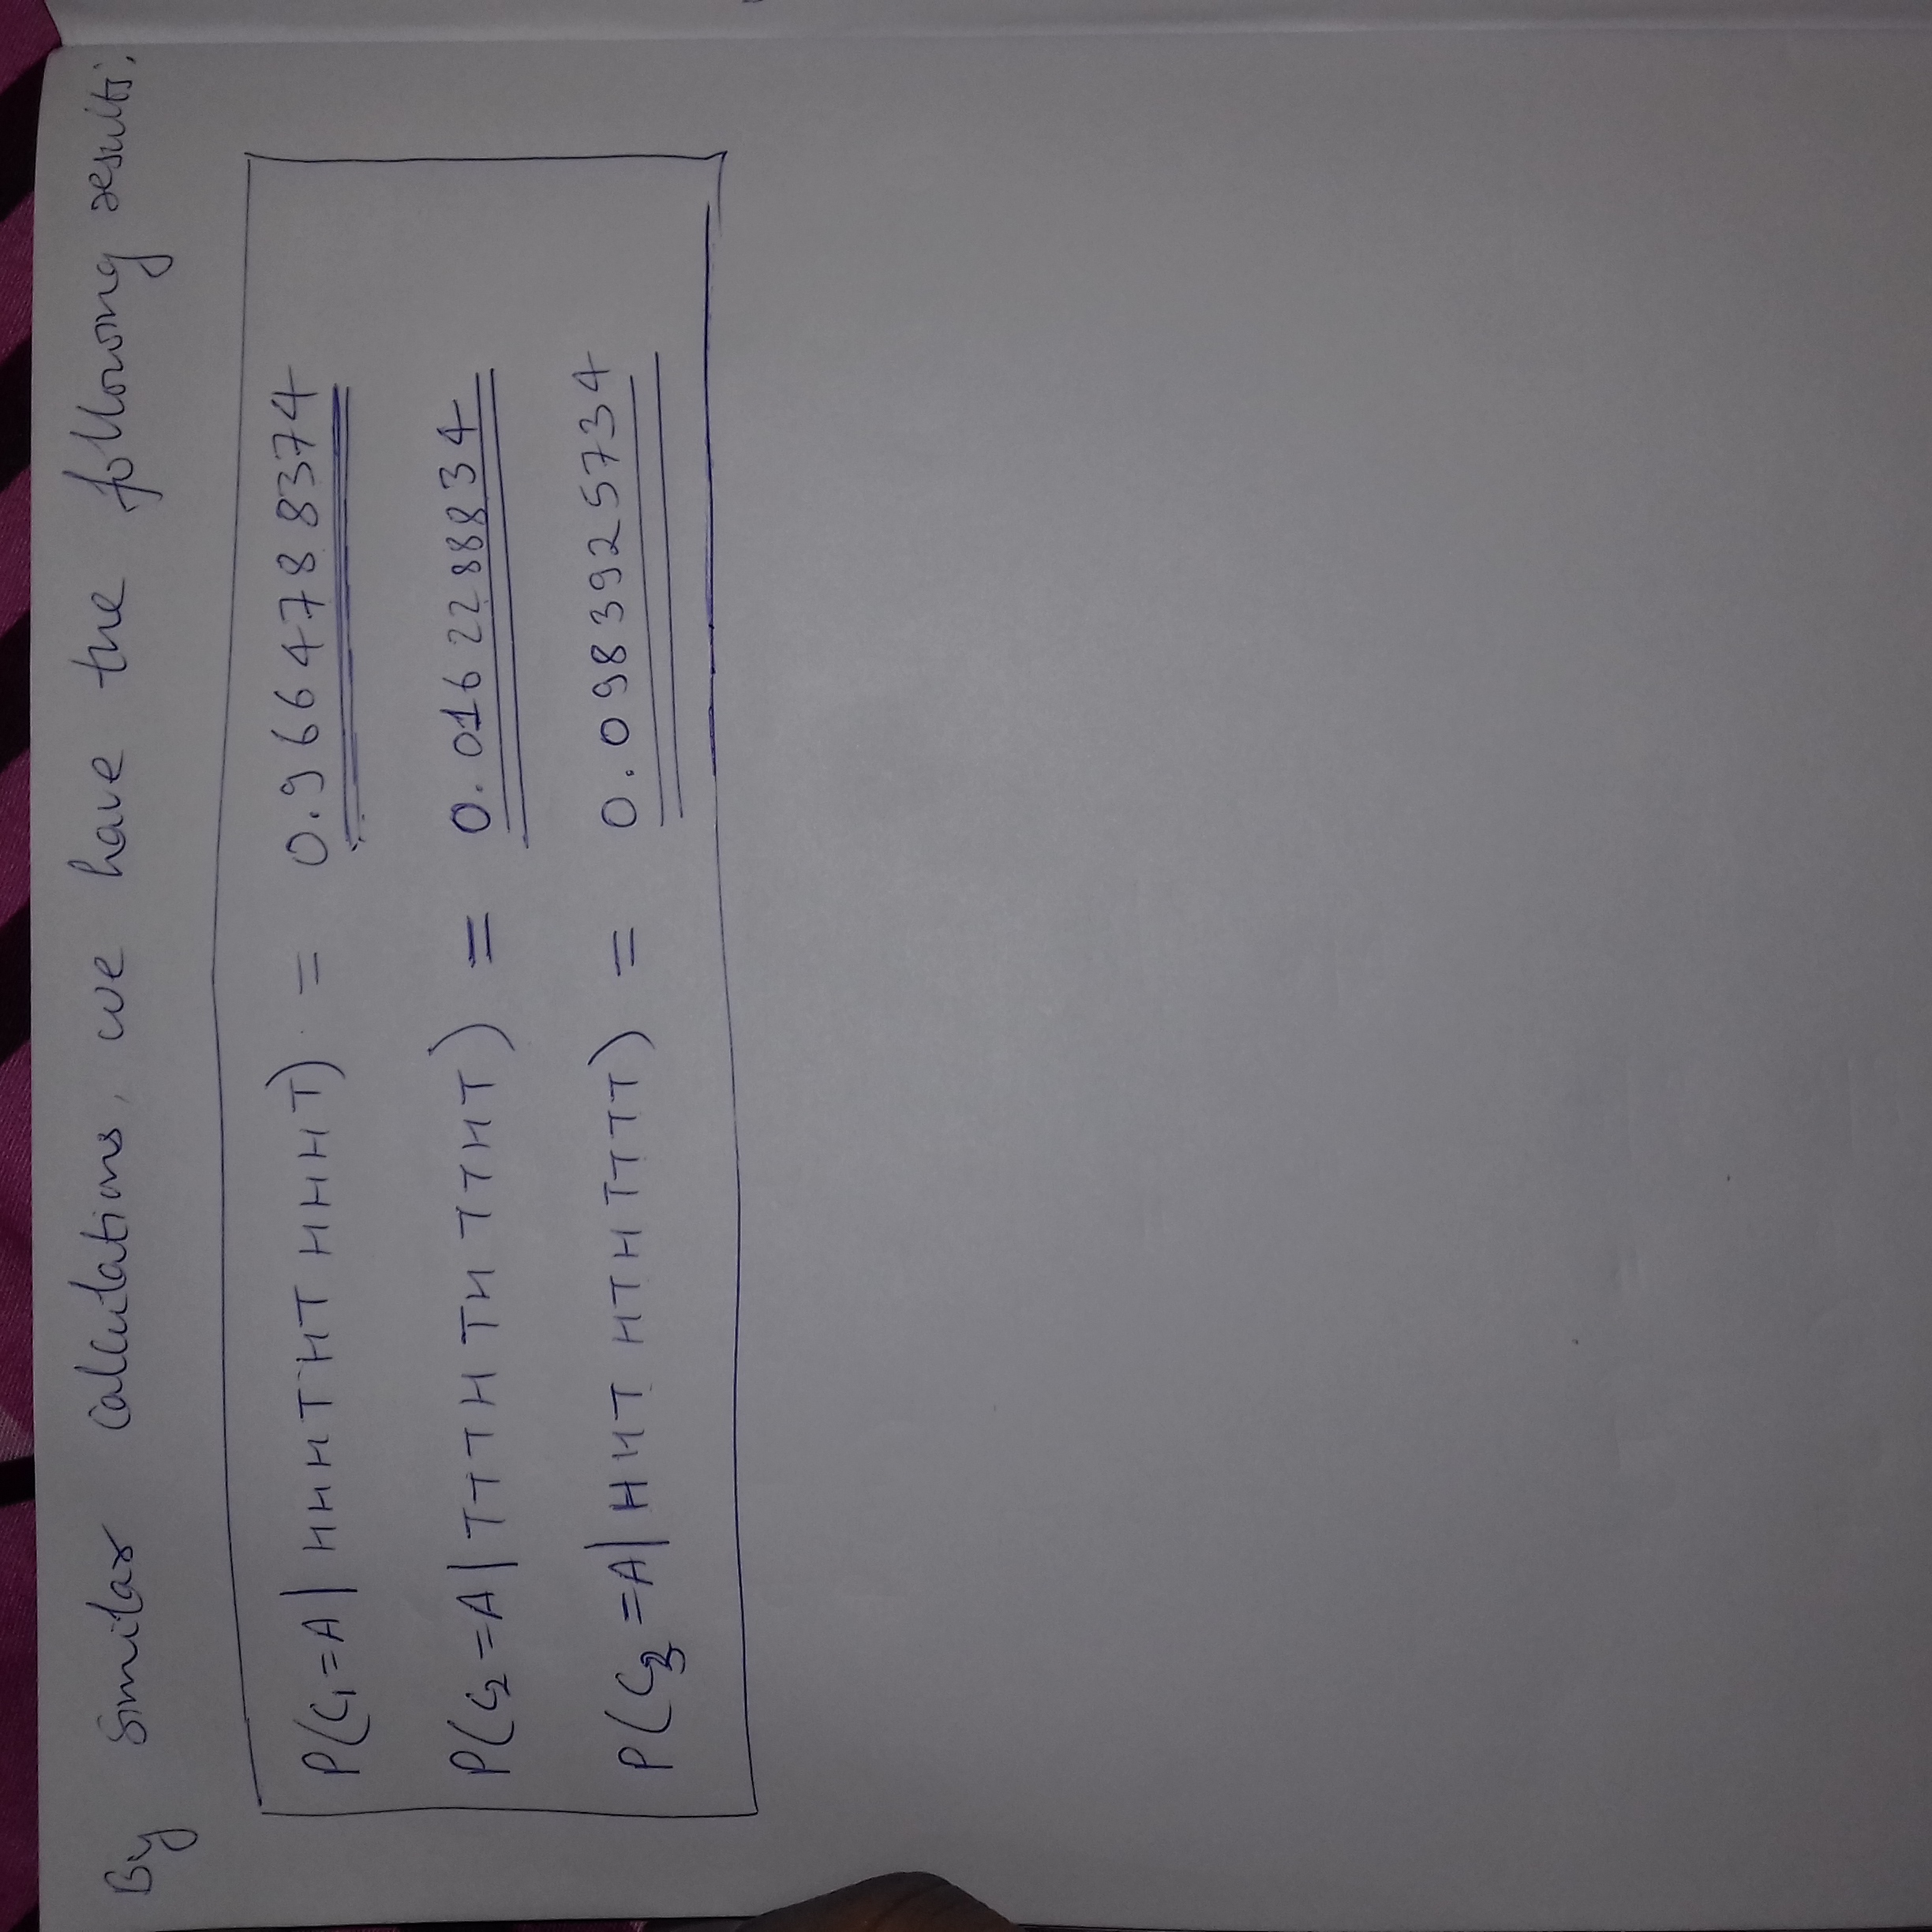 By similar calculations, we have the following results:
P(C₁=A | HHHTHTHHHT) = 0.9664788374
P(C₂=A | TTTHTHTTHT) = 0.0162288834
P(C₃=A | HHTHTHTTTT) = 0.0983925734